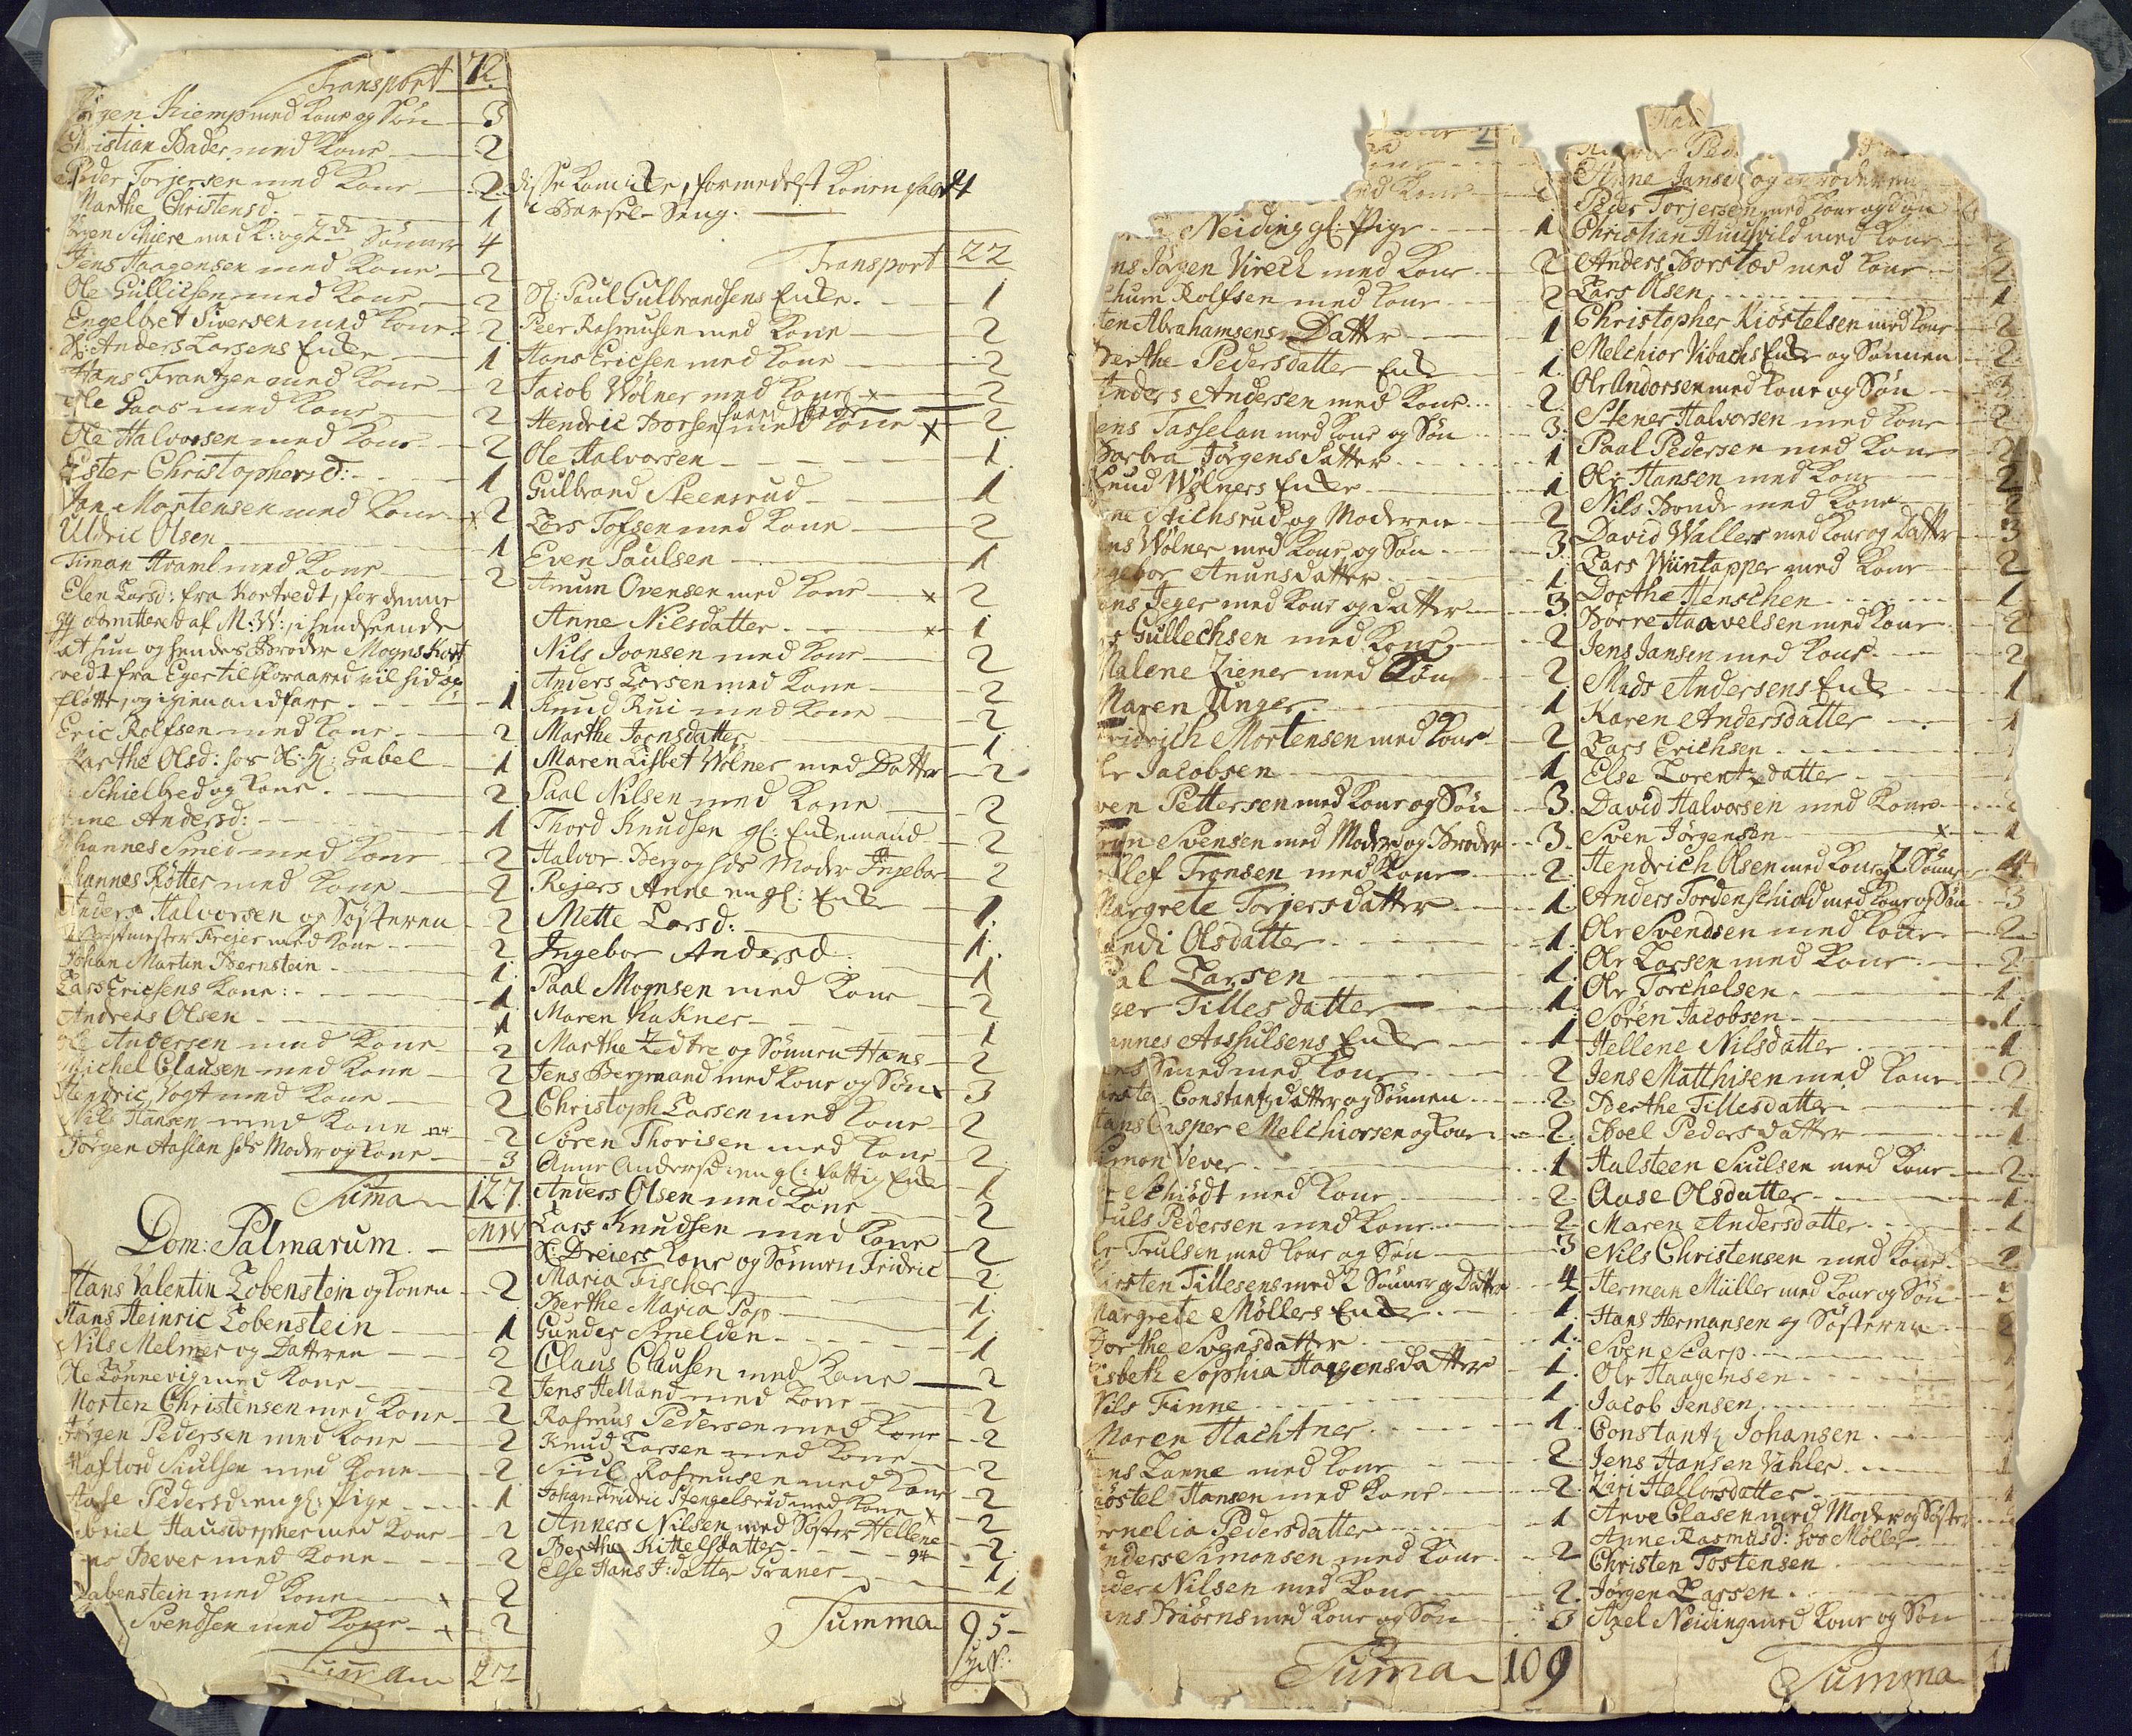 Transport 72
Jörgen Kiemp med Kone og Sön 3
Christian Bader med Kone 2
Peder Torjersen med Kone 2
Marthe Christensd. 1
Jörgen Schiere med K: og 2de Sönner 4
Jens Haagensen med Kone 2
Ole Gullicsen med Kone 2
Engelbret Siversen med Kone 2
Sl: Anders Larsens Enke 1
Hans Frantzen med Kone 2
Ole Gaas med Kone 2
Ole Halvorsen med Kone 2
Ester Christophersd: 1
Jan Mortensen med Kone x 2
Uldric Olsen 1
Timan Haaml med Kone 2
Elen Larsd: fra Kortvedt, for denne
gg admitteret af M:W: i henseende
at hun og hendes Broder Mogns Kort
vedt fra Eger til Foraaret vil hid
flötte, og igien andfare 1
Eric Rolfsen med Kone 2
Marthe Olsd: hos Gabel 1
Schielbred og Kone 2
Anne Andersd: 1
Johannes Smed med Kone 2
Johannes Rötter med Kone 2
Anders Halvorsen og Sösteren 2
Frejer med Kone 2
Johan Martin Bernstein 1
Lars Ericsens Kone 1
Andreas Olsen 1
Ole Andersen med Kone 2
Michel Clausen med Kone 2
Hendric Vogt med Kone 2
Nils Hansen med Kone 2
Jörgen Aaslan hds Moder og Kone 3
Suma 127
Dom: Palmarum. MW
Hans Valentin Lobenstein og Konen 2
Hans Heinric Lobenstein 1
Nils Melmer og Datteren 2
Ole Lönnevig med Kone 2
Morten Christensen med Kone 2
Jörgen Pedersen med Kone 2
Haftord Siulsen med Kone 2
Aase Pedersd: en gl: Pige 1
Hausdorpher med Kone 2
Bever med Kone 2
Labenstein med Kone x 2
Svendsen med Kone x 2
Summa 22
disse kom ikke, formedelst Konen faldt 1
i Barsel-Seng.
Transport 22
Sl: Paul Gulbrandsens Enke 1
Peer Rasmusen med Kone 2
Hans Ericsen med Kone 2
Jacob Wölner med Kone x 2
Hendric Borsen med Kone x 2
Ole Halvorsen 1
Gulbrand Steensrud 1
Lars Tofsen med Kone 2
Even Paulsen 1
Anun Ovensen med Kone x 2
Anne Nilsdatter x 1
Nils Joonsen med Kone 2
Anders Larsen med Kone 2
Knud Rui med Kone 2
Marthe Joensdatter 1
Maren Lisbet Wölner med Datter 2
Paal Nilsen med Kone 2
Thord Knudsen gl: Enkemand 2
Halvor Berg og hds Moder Ingebor 2
Rejers Anne en gl: Enke 1
Mette Larsd: 1
Ingebor Andersd: 1
Paal Mognsen med Kone 2
Maren Kahner 1
Marthe Zedtre og Sönnen Hans 2
Jens Bergmand med Kone og Sön x 3
Christoph Larsen med Kone 2
Sören Thorisen med Kone 2
Anne Andersd: en gl: fattig Enke 1
Anders Olsen med Kone 2
Lars Knudsen med Kone 2
Sl: Dreiers Kone og Sönnen Fridric 2
Maria Fischer 1
Berthe Maria Pop 1
Gunder Smelden 1
Claus Clausen med Kone 2
Jens Helland med Kone 2
Rasmus Pedersen med Kone 2
Knud Larsen med Kone 2
Siul Rasmusen med Kone 2
Johan Fridric Stengelsrud med Kone x 2
Anners Nilsen med Söster Hellene 2
Berthe Kittelsdatter 1
Else Hans J: datter Graner 1
Summa 95
Neiding gl: Pige 1
Jörgen Virech med Kone 2
Rolfsen med Kone 2
Abrahamsens Datter 1
Berthe Pedersdatter Enke 1
Anders Andersen med Kone 2
Jens Tasselan med Kone og Sön 3
Barbra Jörgens Datter 1
Knud Wölners Enke 1
Stichsrud og Moderen 2
Wölner med Kone og Sön 3
Ingebor Anunsdatter 1
Jens Jeger med Kone og datter 3
Gullechsen med Kone 2
Malene Ziener med Sön 2
Maren Unger 1
Fridrich Mortensen med Kone 2
Ole Jacobsen 1
Sven Pettersen med Kone og Sön 3
Svensen med Moder og Broder 3
Ollef Tronsen med Kone 2
Margrete Torjersdatter 1
Randi Olsdatter 1
Larsen 1
Tillesdatter 1
Johannes Aashulsens Enke 1
Smed med Kone 2
Constantz datter og Sönnen 2
Hans Casper Melchiorsen og Kone 2
Simon Vever 1
Schiödt med Kone 2
Pedersen med Kone 2
Ole Trulsen med Kone og Sön 3
Kirsten Tillesens med 2 Sönner og Datter 4
Margrete Möllers Enke 1
Dorthe Svensdatter 1
Lisbeth Sophia Haagensdatter 1
Nils Finne 1
Maren Hachtner 1
Jens Lanne med Kone 2
Kiöstel Hansen med Kone 2
Cornelia Pedersdatter 1
Anders Simonsen med Kone 2
Peder Nilsen med Kone 2
Biörns med Kone og Sön 3
Suma 109
Anne Jansen
Peder Torjersen med Kone og
Christian Huusvild med Kone 2
Anders Borstæs med Kone 2
Lars Olsen 1
Christopher Kiöstelsen med Kone 2
Melchior Vibachs Enke og Sönnen 2
Ole Andorsen med Kone og Sön 3
Stener Halvorsen med Kone 2
Paal Pedersen med Kone 2
Ole Hansen med Kone 2
Nils Bonde med Kone 2
David Wallers med Kone og Datter 3
Lars Wiintapper med Kone 2
Dorthe Henschen 1
Börre Haavelsen med Kone 2
Jens Jansen med Kone 2
Mads Andersens Enke 1
Karen Andersdatter 1
Lars Erichsen 1
Else Lorentzdatter
David Halvorsen med Kone 2
Sven Jörgensen x 1
Hendrich Olsen med Kone og 2 Sönner 4
Anders Tordenschiold med Kone og Sön 3
Ole Svendsen med Kone 2
Ole Larsen med Kone 2
Ole Torchelsen 1
Sören Jacobsen 1
Hellene Nilsdatter 1
Jens Matthisen med Kone 2
Berthe Tillesdatter 1
Boel Pedersdatter 1
Halsteen Siulsen med Kone 2
Aase Olsdatter 1
Maren Andersdatter 1
Nils Christensen med Kone 2
Herman Müller med Kone og Sön 3
Hans Hermansen og Sösteren 2
Sven Scarp
Ole Haagensen
Jacob Jensen
Constantz Johansen
Jens Hansen Vahler
Ziri Hellorsdatter
Arve Clasen med Moder og Söster
Anne Rasmusd: hos Möller
Christen Tostensen
Jörgen Larsen
Axel Neiding med Kone og Sön
Summa